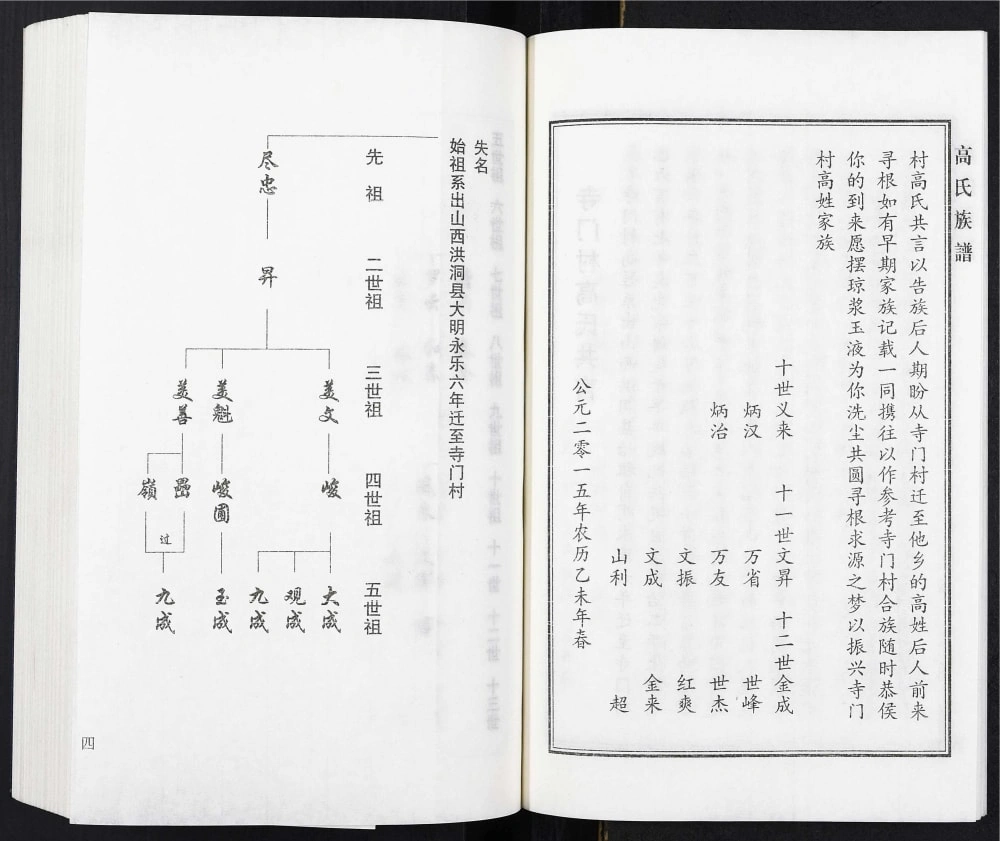 高氏族譜
村高氏共言以告族后人期盼从寺门村迁至他乡的高姓后人前来
寻根如有早期家族记载一同携往以作参考寺门村合族随时恭侯
你的到来愿摆琼浆玉液为你洗尘共圆寻根求源之梦以振兴寺门
村高姓家族
十世义来 十一世文昇 十二世金成
炳汉 万省 世峰
炳治 万友 世杰
文振 红爽
文成 金来
山利 超
公元二零一五年农历乙未年春
失名
始祖系出山西洪洞县大明永乐六年迁至寺门村
先祖 二世祖 三世祖 四世祖 五世祖
尽忠
昇
美文
美魁
美善
峻
峻圃
嶺
大成
观成
九成
玉成
过
九成
四